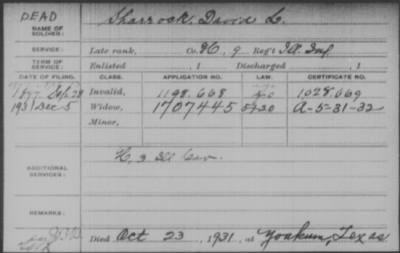 DEAD
NAME OF SOLDIER: Sharrock, David L.
SERVICE: Late rank, Co. H, 9 Reg't Ill. Inf.
TERM OF SERVICE: Enlisted , 1 Discharged , 1
DATE OF FILING. CLASS. APPLICATION NO. LAW. CERTIFICATE NO.
1897 Sep. 28 Invalid, 1198.668 1028.669
1931 Dec 5 Widow, 1707445 5/1/20 A-5-31-32
Minor,
ADDITIONAL SERVICES:
H, 9 Ill Cav.
REMARKS:
Died Oct 23, 1931, at Yoakum, Texas